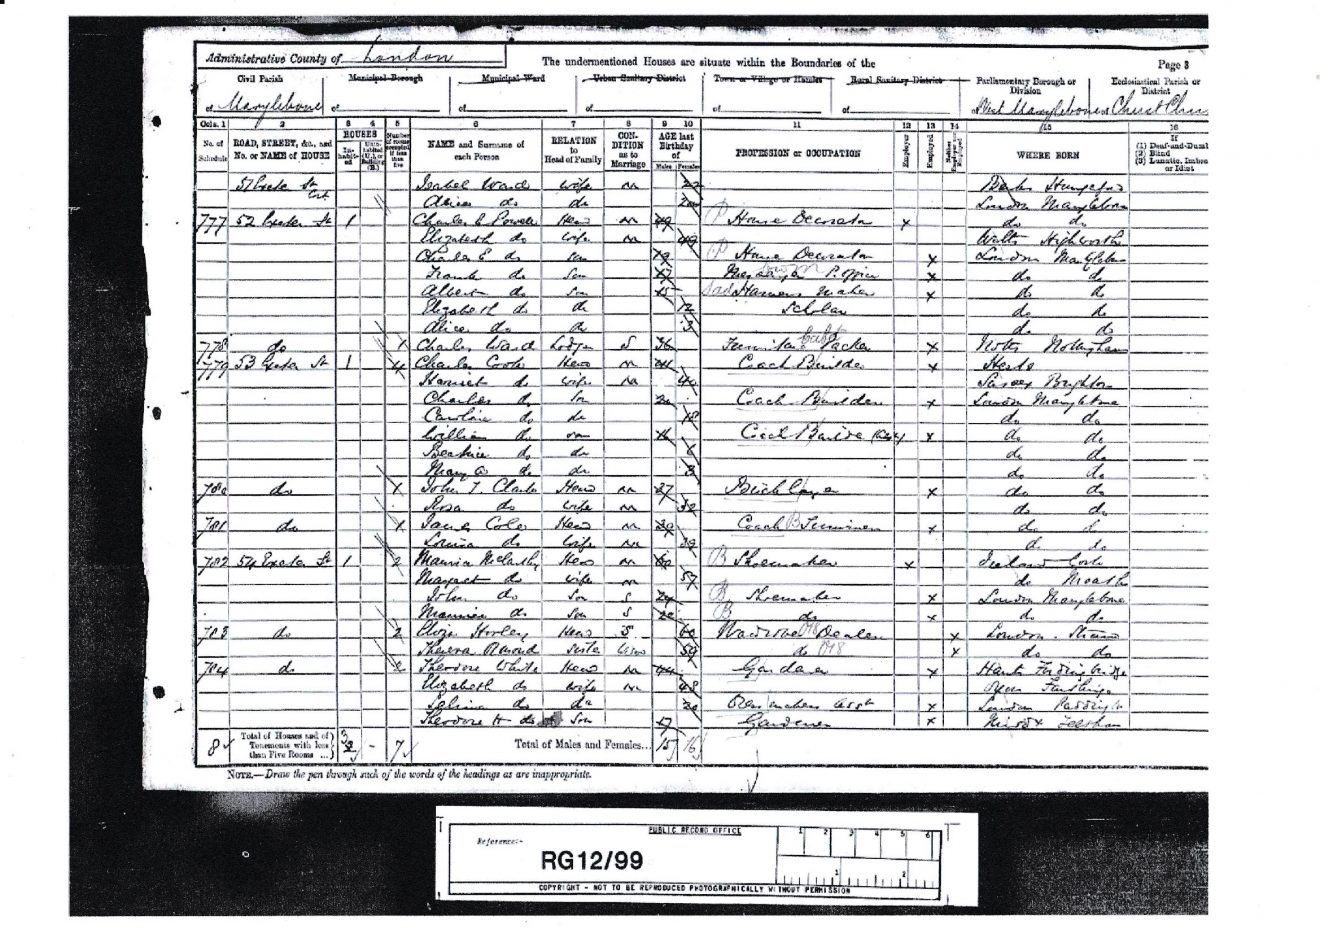 Administrative County of London The undermentioned Houses are situate within the Boundaries of the Page 3
Civil Parish Municipal Borough Municipal Ward Urban Sanitary District Town or Village or Hamlet Rural Sanitary District Parliamentary Borough or Division Ecclesiastical Parish or District
of Marylebone of of of of of of West Marylebone of Christ
Cols. 1 2 3 4 5 6 7 8 9 10 11 12 13 14 15 16
No. of Schedule ROAD, STREET, &c., and No. or NAME of HOUSE HOUSES Inhabited Uninhabited (U.), or Building (B.) Number of rooms occupied if less than five NAME and Surname of each Person RELATION to Head of Family CONDITION as to Marriage AGE last Birthday of Males Females PROFESSION or OCCUPATION Employer Employed Neither Employer nor Employed WHERE BORN If (1) Deaf-and-Dumb (2) Blind (3) Lunatic, Imbec or Idiot
51 Exeter St Isabel Ward wife m Berks
Alice do da London Marylebone
777 52 Exeter St 1 Charles Powell Head m 49 House Decorator x do do
Elizabeth do wife m 49 Wilts Highworth
Charles E do son 19 House Decorator x London Marylebone
Frank do Son 17 Messenger P. Office x do do
Albert do Son 15 Harness Maker x do do
Elizabeth do da 12 Scholar do do
Alice do da 3 do do
778 do 1 Charles Ward Lodger S 36 Furniture Packer x Notts Nottingham
779 53 Exeter St 1 4 Charles Cook Head m 41 Coach Builder x Herts
Harriet do wife m 40 Sussex Brighton
Charles do Son 20 Coach Builder x London Marylebone
Caroline do da 18 do do
William do son 16 Coach Builder x do do
Beatrice do da 6 do do
Mary A do da 3 do do
780 do John T. Clark Head m 27 Bricklayer x do do
Rosa do wife m 32 do do
781 do James Cole Head m 39 Coach Trimmer x do do
Louisa do wife m 39 do do
782 54 Exeter St 1 2 Maurice McCarthy Head m 60 Shoemaker x Ireland Cork
Margaret do wife m 57 do Meath
John do Son S 24 Shoemaker x London Marylebone
Maurice do Son S 20 do x do do
783 do 2 Eliza Head S 60 Wardrobe Dealer x London Strand
Theresa Sister Widow 59 do x do do
784 do 2 Theodore White Head m 44 Gardener x Hants Fordingbridge
Elizabeth do wife m 48
Selina do da 20 Dressmakers Asst x London Paddington
Theodore H do Son 17 Gardener x Middx Feltham
8 Total of Houses and of Tenements with less than Five Rooms ... 3 - 7 Total of Males and Females... 15 16
NOTE.—Draw the pen through such of the words of the headings as are inappropriate.
PUBLIC RECORD OFFICE 1 2 3 4 5 6
Reference:-
RG12/99 1 2
COPYRIGHT - NOT TO BE REPRODUCED PHOTOGRAPHICALLY WITHOUT PERMISSION